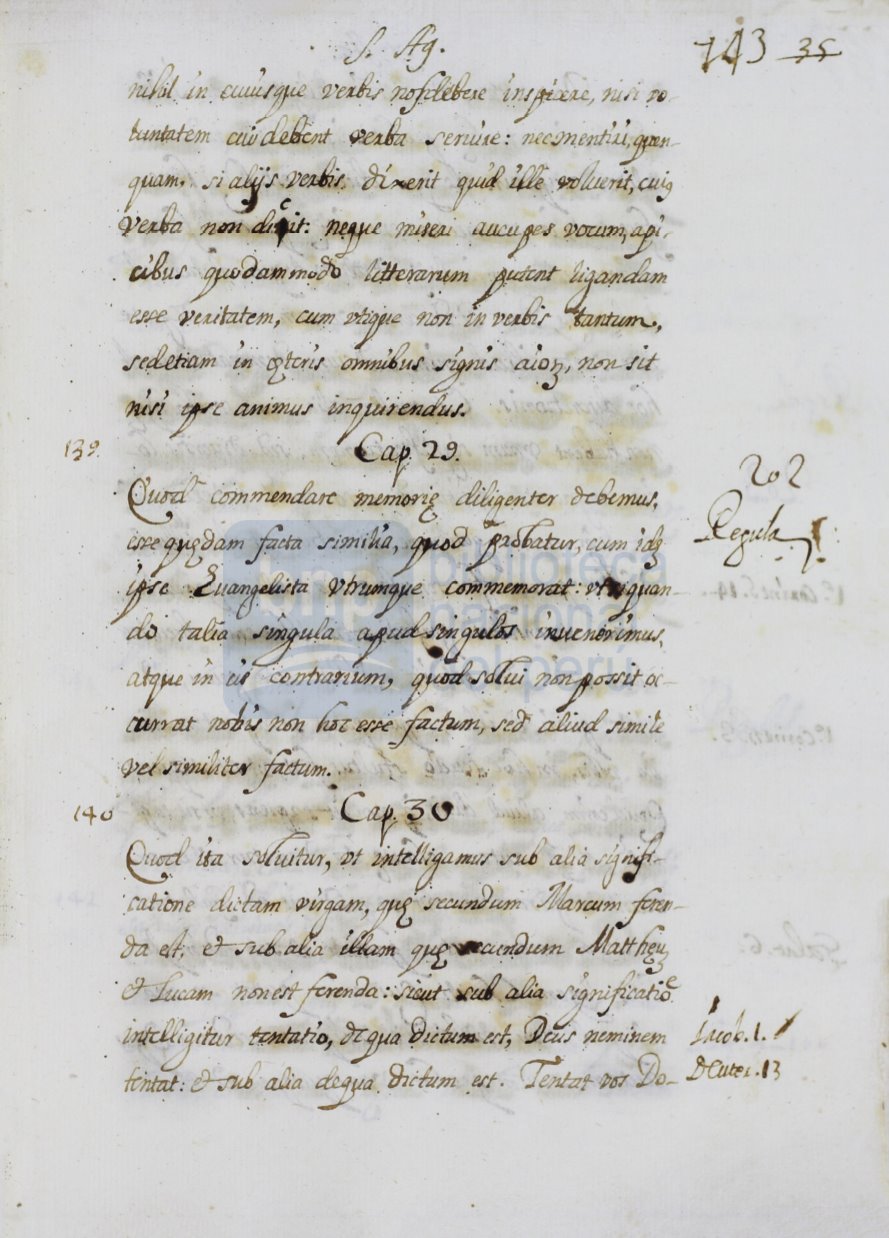 S. Ag.
143 35
nihil in cuiusque verbis nos debere inspicere, nisi vo-
luntatem cui debent verba seruire: nec mentiri, quen-
quam. si alijs verbis dixerit quid ille voluerit, cuiꝰ
verba non dicit: neque miseri aucupes vocum, api-
cibus quodammodo litterarum putent ligandam
esse veritatem, cum vtique non in verbis tantum,
sed etiam in cęteris omnibus signis aioꝝ, non sit
nisi ipse animus inquirendus.
139. Cap. 29.
202
Regula
Quod commendare memorię diligenter debemus,
esse quędam facta similia, quod probatur, cum idē
ipse Euangelista vtrumque commemorat: vt siquan-
do talia singula apud singulos inuenerimus,
atque in eis contrarium, quod solui non possit oc-
currat nobis non hoc esse factum, sed aliud simile
vel similiter factum.
140 Cap. 30
Quod ita soluitur, vt intelligamus sub alia signifi-
catione dictam virgam, quę secundum Marcum feren-
da est, et sub alia illam quę secundum Matthęū
et Lucam non est ferenda: sicut sub alia significatiōe
intelligitur tentatio, de qua dictum est, Deus neminem
Iacob. 1.
tentat: et sub alia de qua dictum est. Tentat vos Do-
Deuter. 13
biblioteca
nacional
del perú